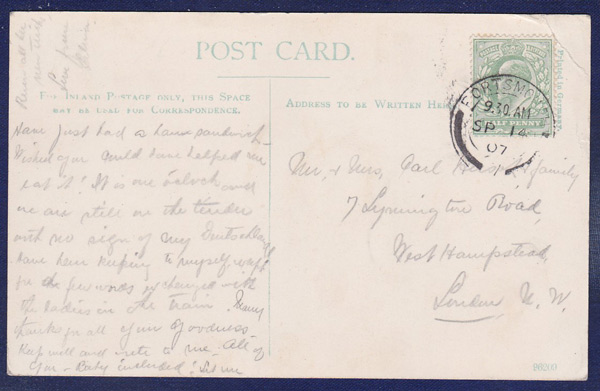 POST CARD.
FOR INLAND POSTAGE ONLY, THIS SPACE
MAY BE USED FOR CORRESPONDENCE.
Have just had a ham sandwich
Wished you could have helped me
eat it! It is one o'clock and
we are still on the tender
with no sign of any Deutschland
have been keeping to myself except
for few words exchanged with
the ladies in the train. Many
thanks for all your goodness
Keep well and write to me. All of
you - Baby included! Let me
ADDRESS TO BE WRITTEN HERE
PORTSMOUTH
9.30 AM
SP 14
07
HALF PENNY
Mr. & Mrs. Carl & family
7 Lymington Road,
West Hampstead,
London, N. W.
Printed in Germany.